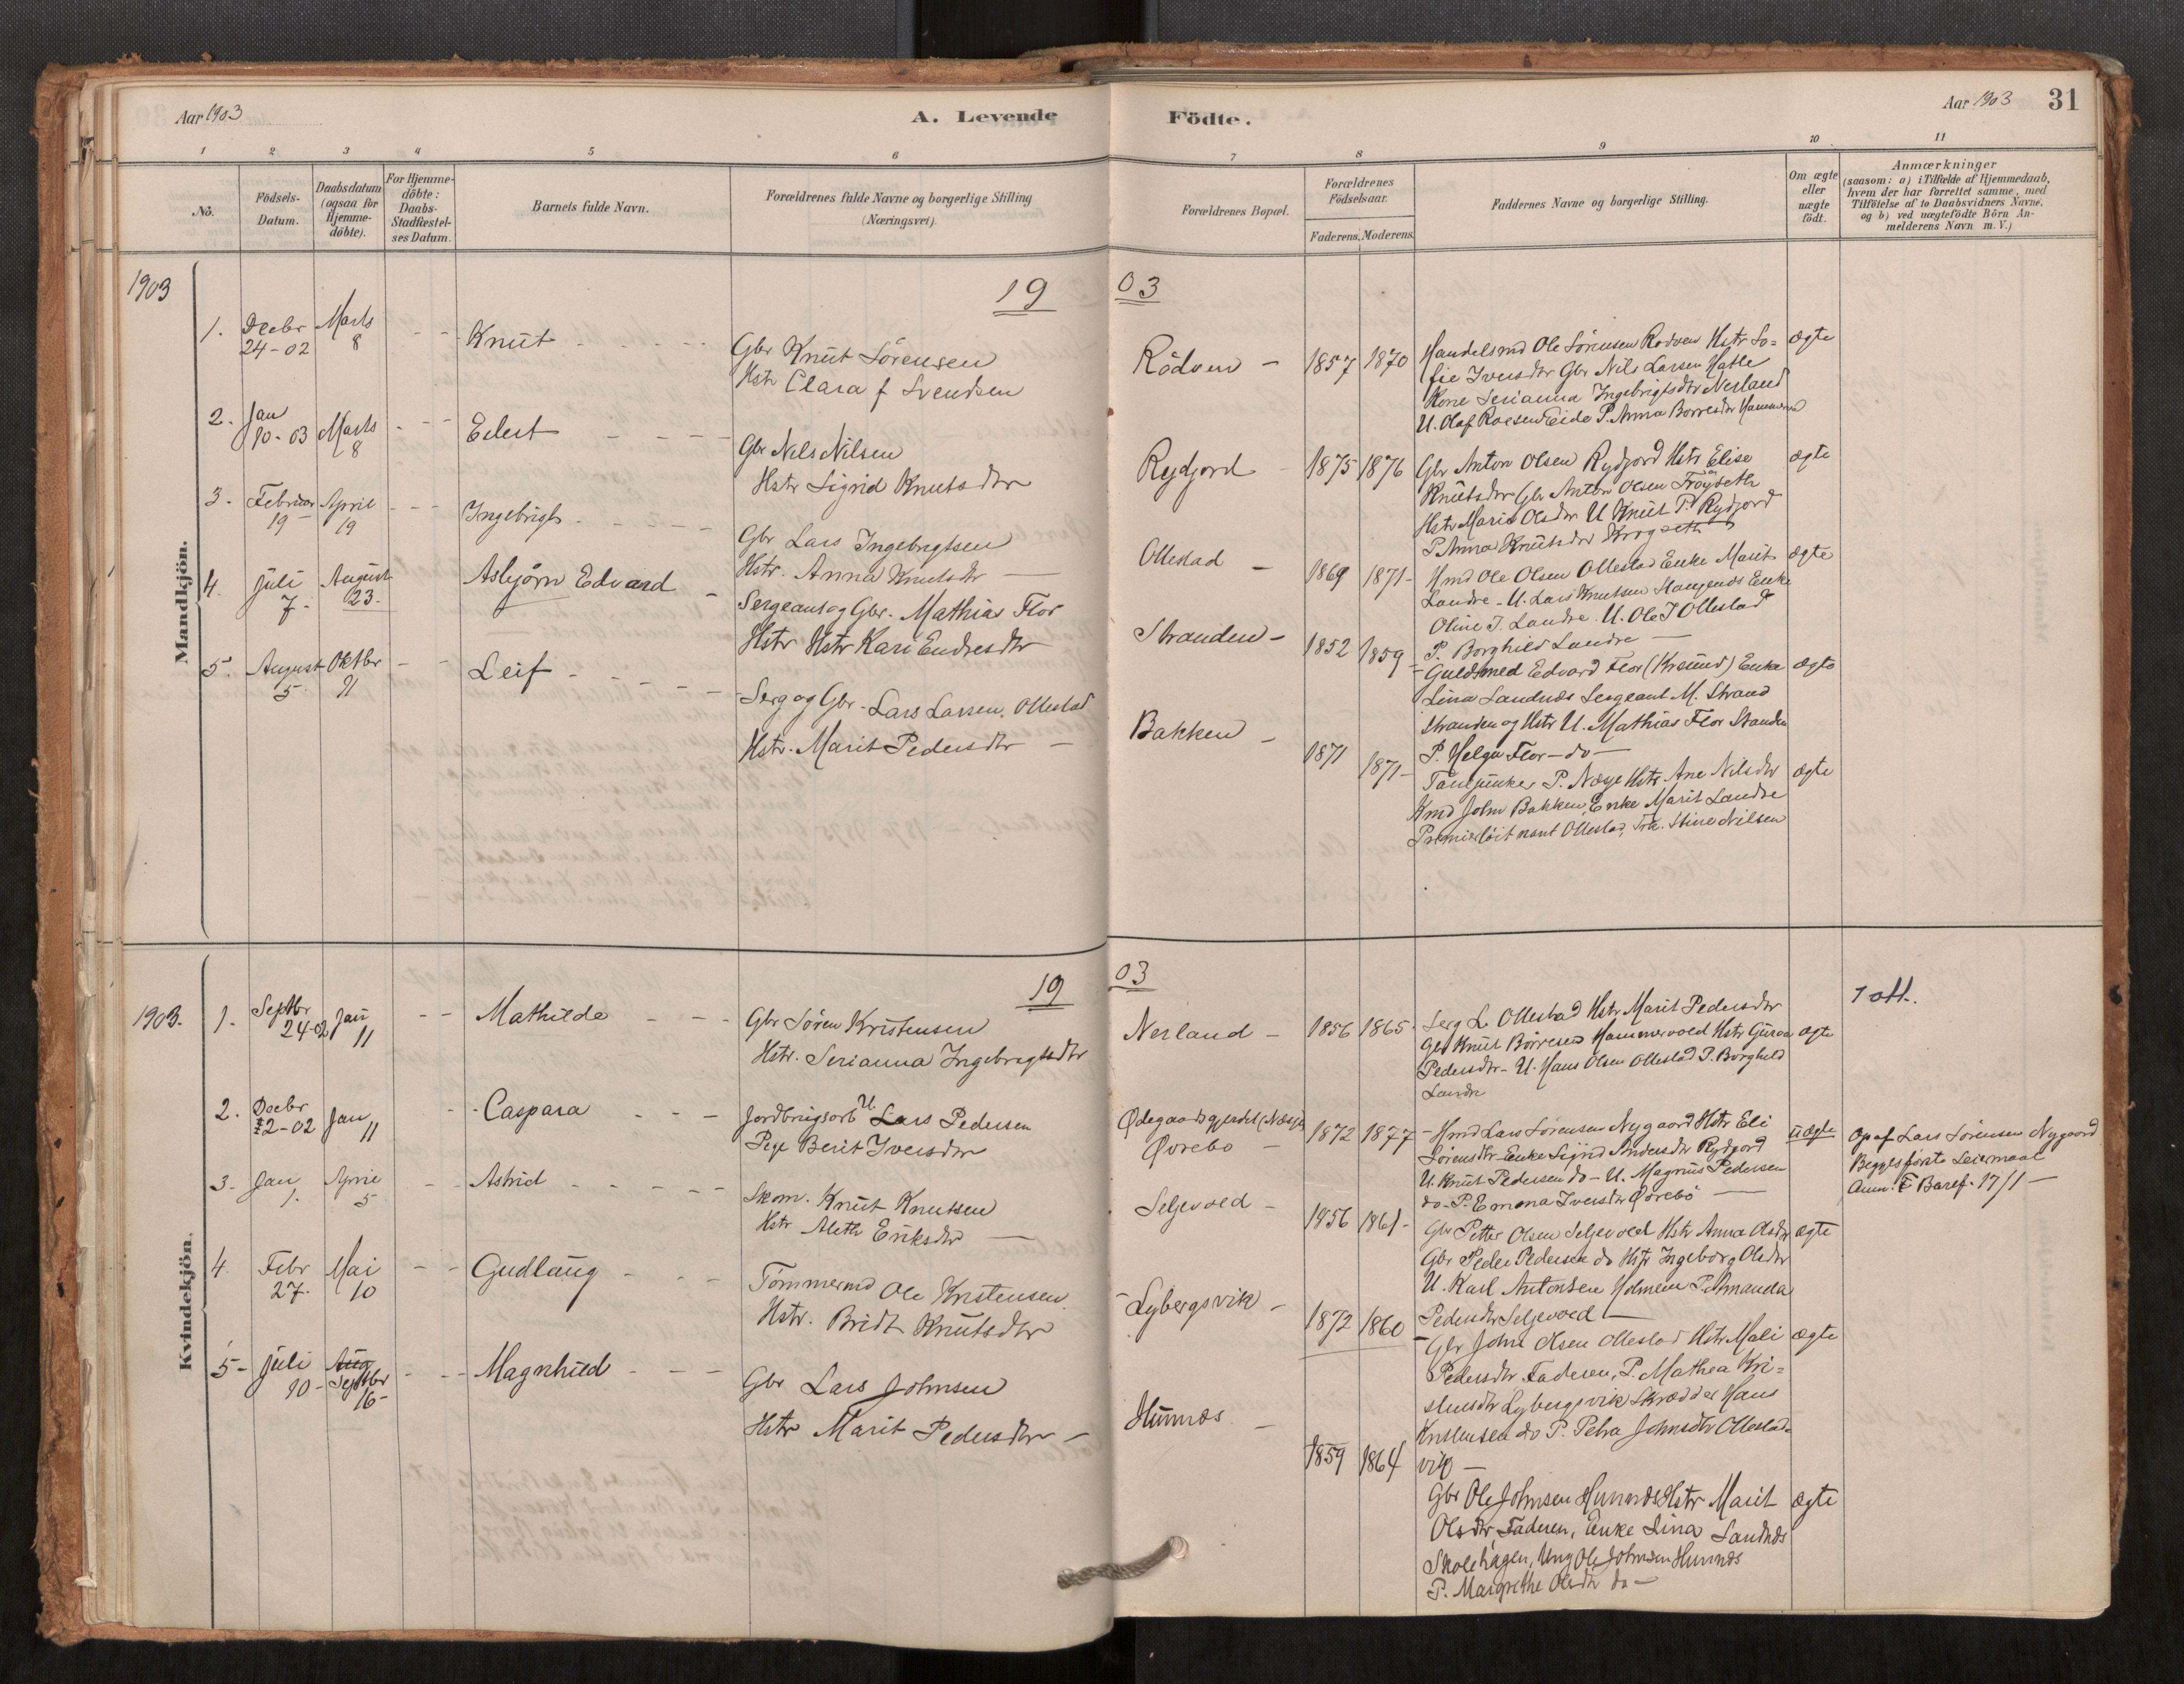 Aar 1903
A. Levende
Födte.
Aar 1903
31
1 2 3 4 5 6 7 8 9 10 11
No.
Födsels-
Datum.
Daabsdatum
(ogsaa for
Hjemme-
döbte).
For Hjemme-
döbte:
Daabs-
Stadfæstel-
ses Datum.
Barnets fulde Navn.
Forældrenes fulde Navne og borgerlige Stilling
(Næringsvei).
Forældrenes Bopæl.
Forældrenes
Födselsaar.
Faderens. Moderens.
Faddernes Navne og borgerlige Stilling.
Om ægte
eller
uægte
födt.
Anmærkninger
(saasom: a) i Tilfælde af Hjemmedaab,
hvem der har forrettet samme, med
Tilföielse af to Daabsvidners Navne,
og b) ved uægtefödte Börn An-
melderens Navn m.V.)
Mandkjön.
1903
19 03
1. Decbr 24-02
Marts 8
Knut
Gbr Knut Sörensen
Hstr Clara f Svendsen
Rödven
1857 1870
Handelsmd Ole Sörensen Rodven Hstr So-
fie Iversdtr Gbr Nils Larsen Hatle
Kone Serianna Ingebrigtsdtr Nerland
U. Olaf Roesen Eide P. Anna Borresdtr
ægte
2. Jan 10-03
Marts 8
Eilert
Gbr Nils Nilsen
Hstr Sigrid Knutsdtr
Rydjord
1875 1876
Gbr Anton Olsen Rydjord Hstr Elise
Knutsdtr Gbr Anton Olsen Fröyseth
Hstr Marit Olsdtr U Knut P. Rydjord
P. Anna Knutsdtr Krogseth
ægte
3. Februar 19
April 19
Ingebrigt
Gbr Lars Ingebrigtsen
Hstr. Anna Knutsdtr
Ollestad
1869 1871
Kmd Ole Olsen Ollestad Enke Marit
Landre - U. Lars Knutsen Haugenes Enke
Oline J. Landre U. Ole J Ollestad
P. Borghild Landre
ægte
4. Juli 7.
August 23.
Asbjørn Edvard
Sergeant og Gbr. Mathias Flor
Hstr Hstr Kari Endresdtr
Stranden
1852 1859
Guldsmed Edvard Flor (Krsund) Enke
Lina Sandnes Sergeant M. Strand
Stranden og Hstr U. Mathias Flor Stranden
P. Helga Flor - do
ægte
5. August 5
Oktbr 11
Leif
Serg og Gbr. Lars Larsen Ollestad
Hstr. Marit Pedersdtr
Bakken
1871 1871
P. Næsje Hstr Ane Nilsdtr
Kmd John Bakken, Enke Marit Landre
Premierlöitnant Ollestad, Frk. Stine Nilsen
ægte
Kvindekjön.
1903.
19 03
1. Septbr 24-02
Jan 11
Mathilde
Gbr Sören Kristensen
Hstr. Serianna Ingebrigtsdtr
Nerland
1856 1865
Serg L Ollestad Hstr Marit Pedersdtr
Gbr Knut Börresen Hammervold Hstr Guroa
Pedersdtr - U. Hans Olsen Ollestad P. Borghild
Landre
ægte
1 att.
2. Decbr 12-02
Jan 11
Caspara
Jordbrugsarb U. Lars Pedersen
Pige Berit Iversdtr
Ødegaardsgjerdet (Næsje)
Øvrebo
1872 1877
Kmd Lars Sörensen Nygaard Hstr Eli
Sörensdtr Enke Sigrid Andersdtr Rydjord
U. Knut Pedersen do - U. Magnus Pedersen
do - P. Emma Iversdtr Øvrebö
uægte
Op af Lars Sörensen Nygaard
Begges förste Leiermaal
Anm. F Baref. 17/1
3. Jan 1.
April 5
Astrid
Skom. Knut Knutsen
Hstr Aleth Eriksdtr
Seljevold
1856 1861
Gbr Petter Olsen Seljevold Hstr Anna Olsdtr
Gbr Peder Pedersen do Hstr Ingeborg Olsdtr
U. Karl Antonsen Holmem P. Amanda
Pedersdtr Seljevold
ægte
4. Febr 27.
Mai 10
Gudlaug
Tömmermd Ole Kristensen
Hstr. Bridt Knutsdtr
Lybergsvik
1872 1860
Gbr John Olsen Ollestad Hstr Mali
Pedersdtr Faderen, P. Mathea Kri-
stensdtr Lybergsvik Skrædder Hans
Kristensen do P. Petra Johnsdtr Ollestad-
vik
ægte
5. Juli 10
Aug Septbr 16
Magnhild
Gbr Lars Johnsen
Hstr Marit Pedersdtr
Hunnes
1859 1864
Gbr Ole Johnsen Hunnes Hstr Marit
Olsdtr Faderen, Enke Lina Sandnes
Skolehagen, Ung Ole Johnsen Hunnes
P. Margrethe Olsdtr do
ægte